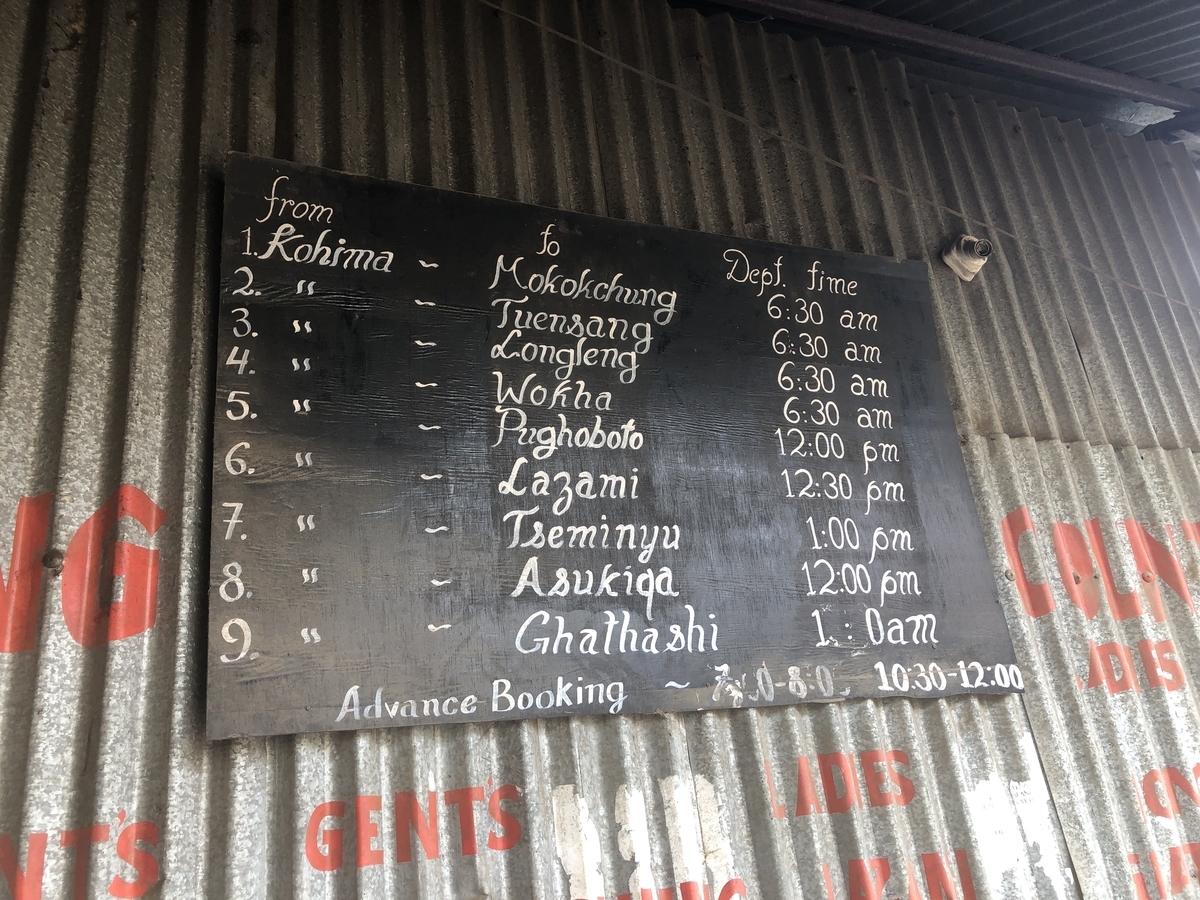 from to Dept. time
1. Kohima ~ Mokokchung 6:30 am
2. " ~ Tuensang 6:30 am
3. " ~ Longleng 6:30 am
4. " ~ Wokha 6:30 am
5. " ~ Pughoboto 12:00 pm
6. " ~ Lazami 12:30 pm
7. " ~ Tseminyu 1:00 pm
8. " ~ Asukiqa 12:00 pm
9. " ~ Ghathashi
Advance Booking ~ 10:30-12:00
GENT'S
LADES